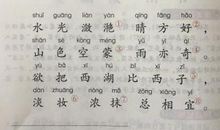 shuǐ guāng liàn yàn qíng fāng hǎo
水光潋滟①晴方好②，
shān sè kōng méng yǔ yì qí
山色空蒙③雨亦奇④。
yù bǎ xī hú bǐ xī zǐ
欲把西湖比西子⑤，
dàn zhuāng nóng mǒ zǒng xiāng yí
淡妆⑥浓抹⑦总相宜⑧。